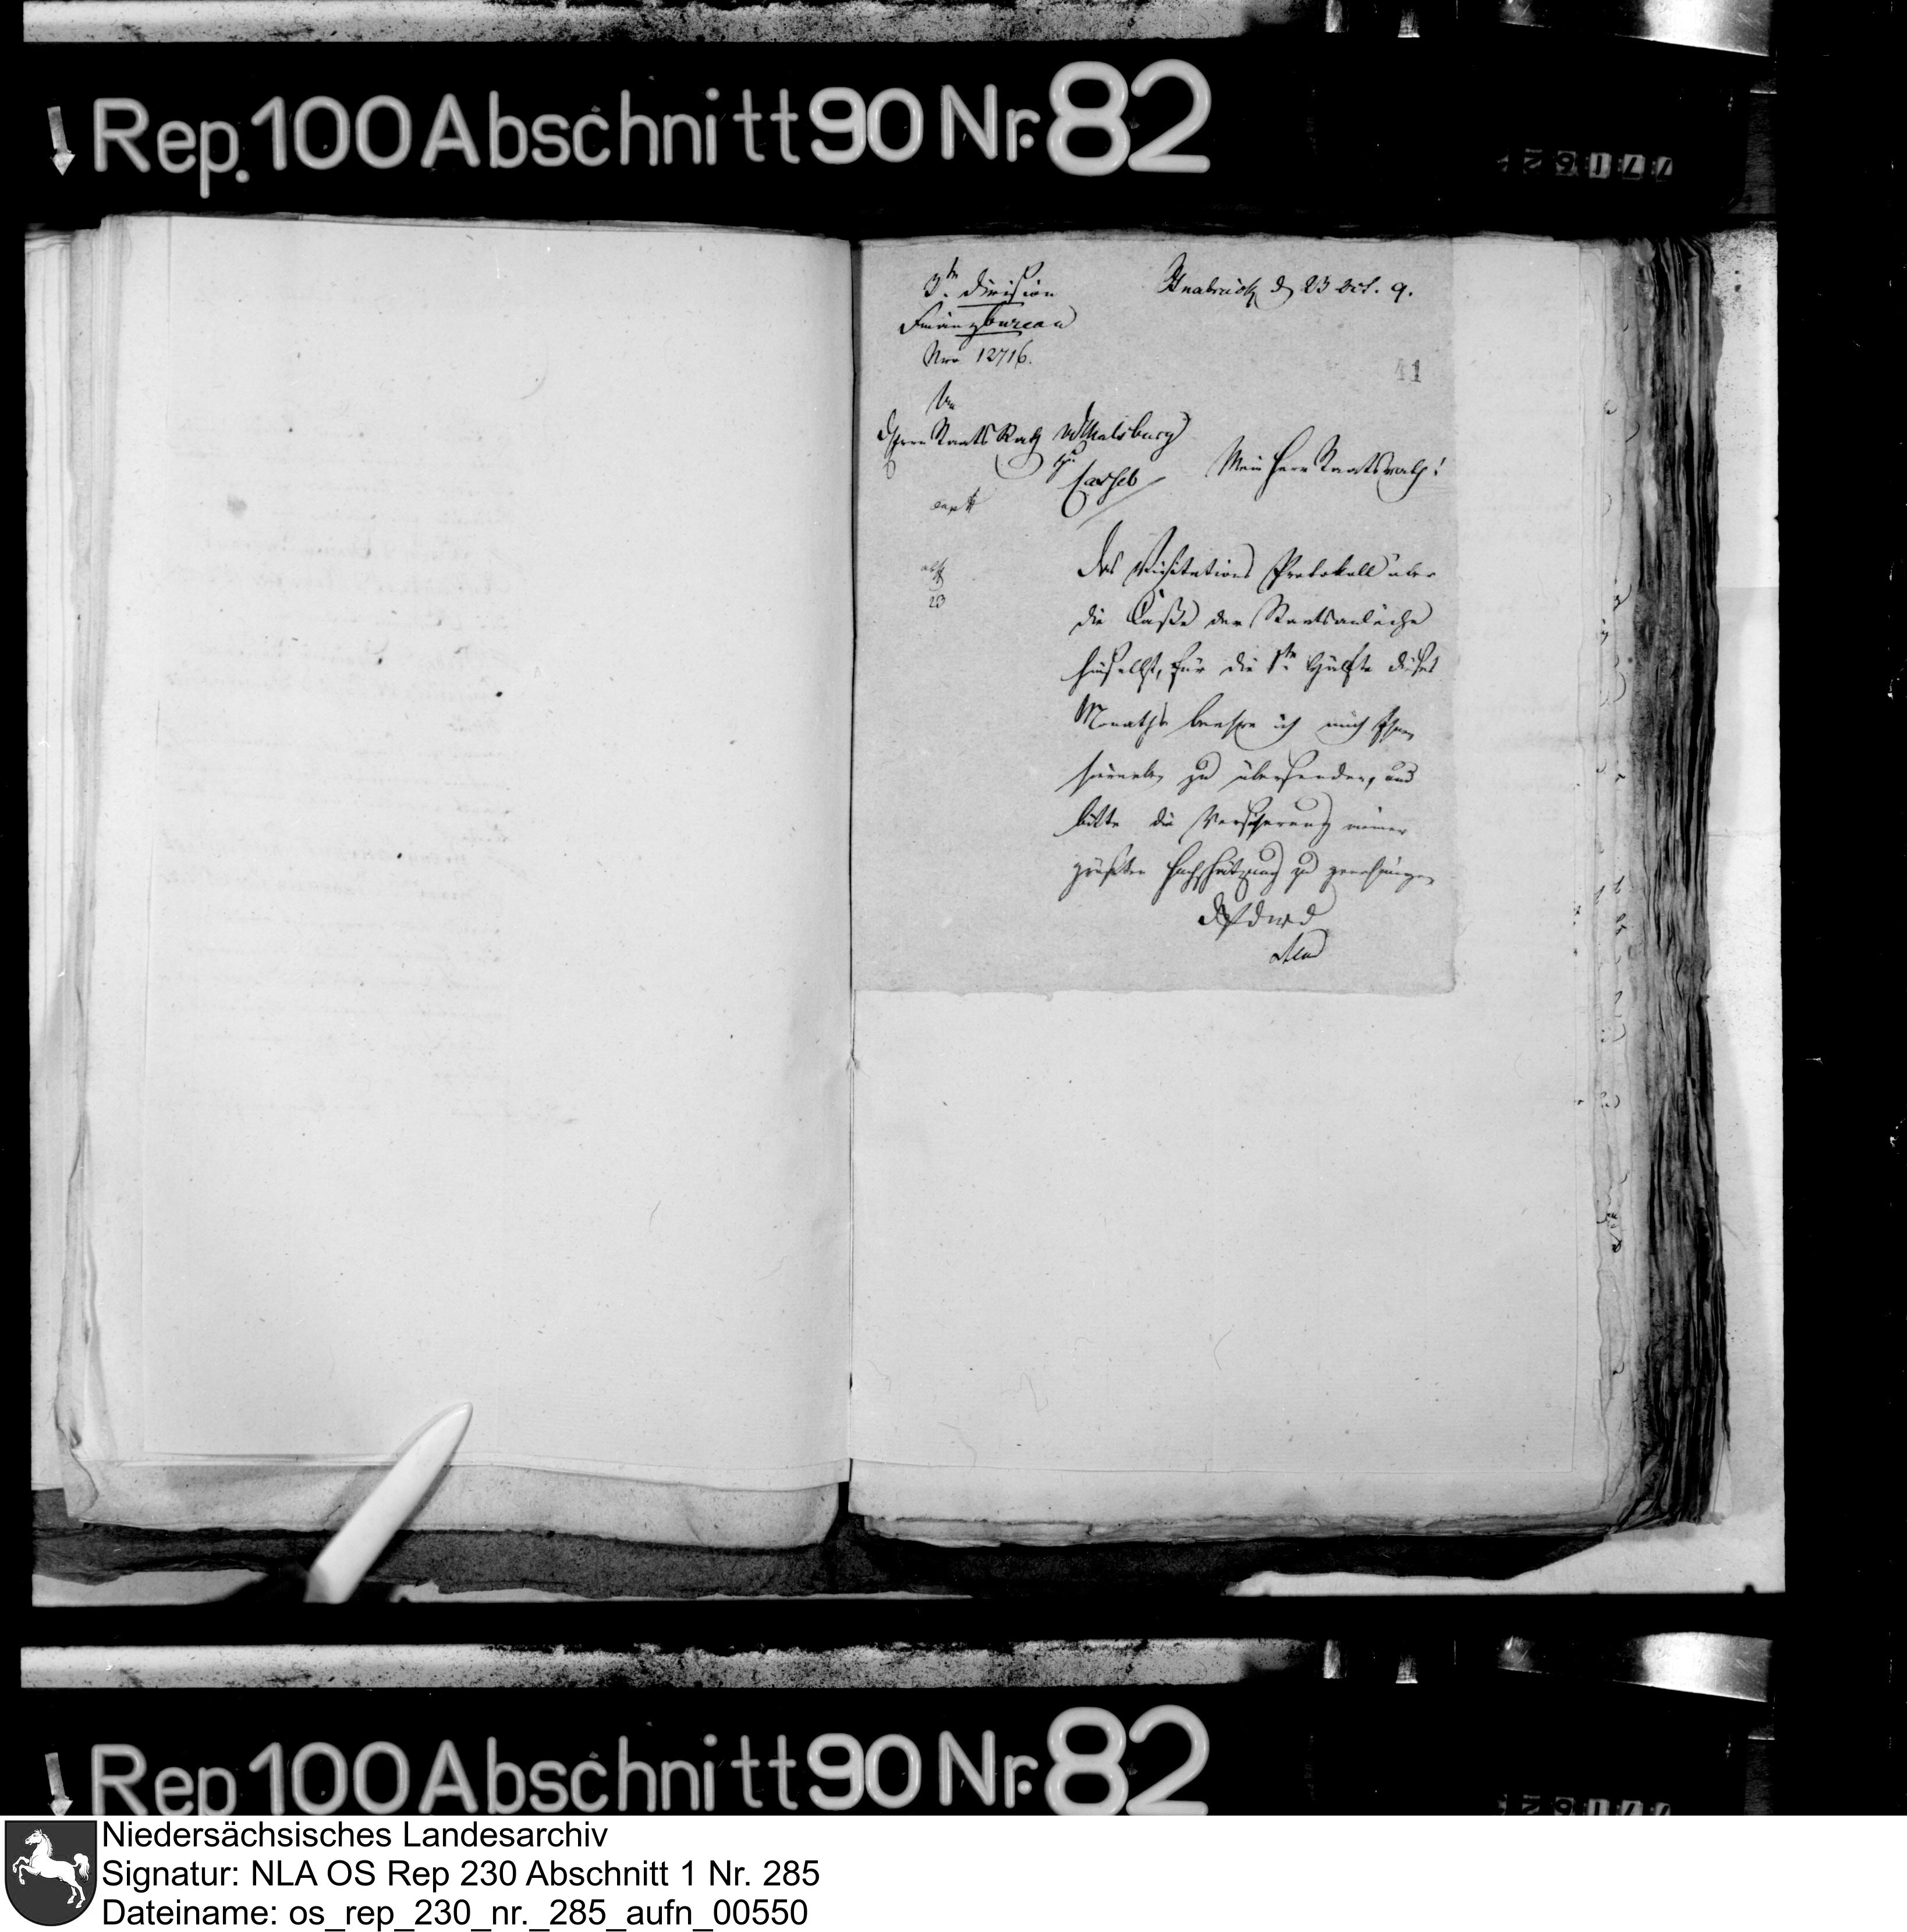 Rep. 100 Abschnitt 90 Nr. 82
3te Division
Osnabrück d 23 Oct. 9.
Finanzbureau
Nro 12716.
41
An
d Herrn Staats Rath v Malsburg
zu
Cassel
Mein Herr Staatsrath!
exp
23
Das Visitations Protokoll über
die Casse der Staatsanleihe
hieselbst, für die 1te Hälfte dieses
Monaths beehre ich mich Ihnen
hierneben zu übersenden, und
bitte die Versicherung meiner
größten Hochschätzung zu genehmigen
Rep 100 Abschnitt 90 Nr. 82
Niedersächsisches Landesarchiv
Signatur: NLA OS Rep 230 Abschnitt 1 Nr. 285
Dateiname: os_rep_230_nr._285_aufn_00550